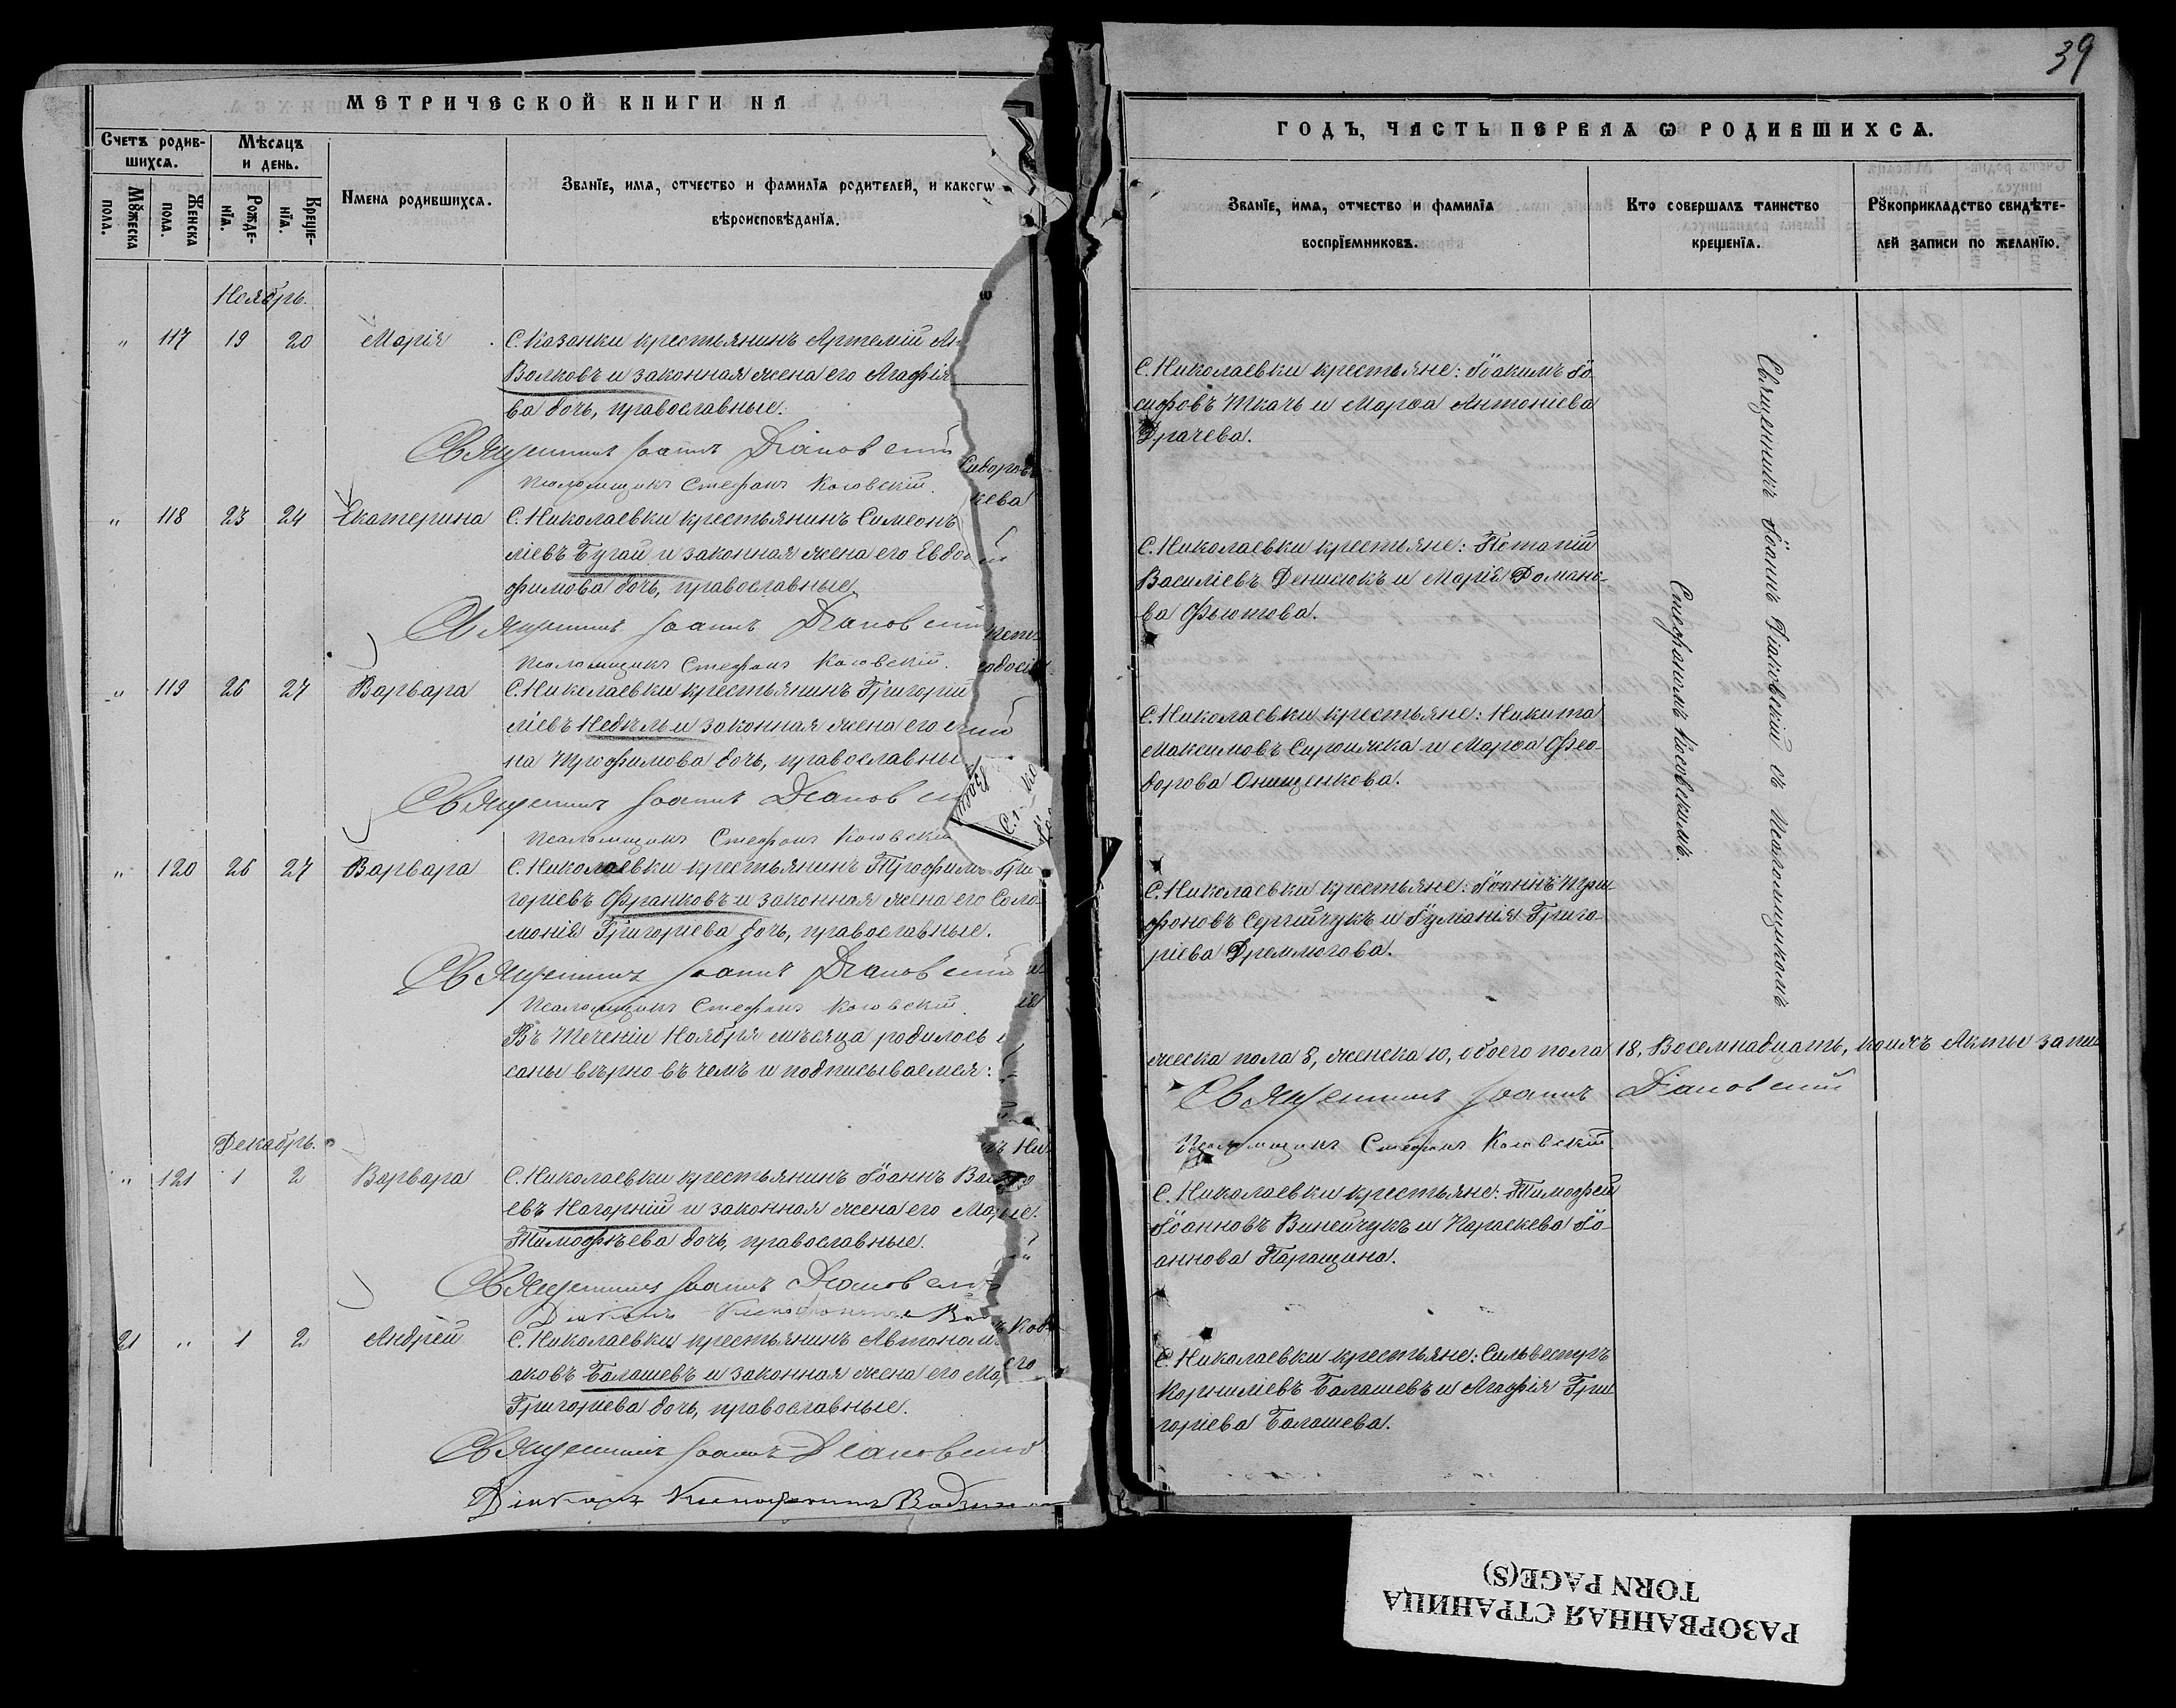 39
МЕТРИЧЕСКОЙ КНИГИ НА
Счетъ родив-
шихсѧ.
Мѣсѧцъ
и день.
Мꙋжеска
пола.
Женска
пола.
Рожде-
нїѧ.
Креще-
нїѧ.
Имена родившихсѧ.
Званїе, имѧ, отчество и фамилїѧ родителей, и какогѡ
вѣроисповѣданїѧ.
Ноябрь.
" 117 19 20 Марія С. Казанки крестьянинъ Артемій Ан
Волковъ и законная жена его Агафія
ва дочь, православные.
Священникъ Іоаннъ Діаковскій
Псаломщикъ Стефанъ Косовскій.
" 118 23 24 Екатерина С. Николаевки крестьянинъ Симеонъ
ліевъ Бугай и законная жена его Евдо
фимова дочь, православные.
Священникъ Іоаннъ Діаковскій
Псаломщикъ Стефанъ Косовскій.
" 119 26 27 Варвара С. Николаевки крестьянинъ Григорій
ліевъ Недѣль и законная жена его
на Трофимова дочь, православны
Священникъ Іоаннъ Діаковс
Псаломщикъ Стефанъ Косовскі
" 120 26 27 Варвара С. Николаевки крестьянинъ Трофимъ Гри
горіевъ Франковъ и законная жена его Соло
монія Григоріева дочь, православные.
Священникъ Іоаннъ Діаковскій
Псаломщикъ Стефанъ Косовскій.
Въ теченіи Ноября мѣсяца родилось
саны вѣрно въ чемъ и подписываемся:
Декабрь.
" 121 1 2 Варвара С. Николаевки крестьянинъ Іоаннъ Вас
евъ Нагорній и законная жена его Ма
Тимофѣева дочь, православные.
Священникъ Іоаннъ Діаковс
Діаконъ Ксенофонтъ
21 " 1 2 Андрей С. Николаевки крестьянинъ Автоном
аковъ Балашевъ и законная жена его Ма
Григоріева дочь, православные.
Священникъ Іоаннъ Діаковскій
Діаконъ Ксенофонтъ
ГОДЪ, ЧАСТЬ ПЕРВАѦ Ѡ РОДИВШИХСѦ.
Званїе, имѧ, отчество и фамилїѧ
воспрїемниковъ.
Кто совершалъ таинство
крещенїѧ.
Рꙋкоприкладство свидѣте-
лей записи по желанїю.
С. Николаевки крестьяне: Іоакимъ Іо-
сифовъ Ткачъ и Марѳа Антоніева
Драчева.
С. Николаевки крестьяне: Потапій
Василіевъ Денисюкъ и Марія Романо-
ва Фьютова.
С. Николаевки крестьяне: Никита
Максимовъ Сиротяка и Марѳа Фео-
дорова Онищенкова.
С. Николаевки крестьяне: Іоаннъ Три
фоновъ Сергійчукъ и Іуліанія Григо-
ріева Дремлюгова.
Священникъ Іоаннъ Діаковскій съ Псаломщикомъ
Стефаномъ Косовскимъ.
жеска пола 8, женска 10, обоего пола 18, Восемнадцать, коихъ Акты запи
Священникъ Іоаннъ Діаковскій
Псаломщикъ Стефанъ Косовскій.
С. Николаевки крестьяне: Тимофей
Іоанновъ Винейчукъ и Параскева Іо-
аннова Паращина.
С. Николаевки крестьяне: Сильвестръ
Корниліевъ Балашевъ и Агафія Гри
горіева Балашева.
РАЗОРВАННАЯ СТРАНИЦА
TORN PAGE(S)